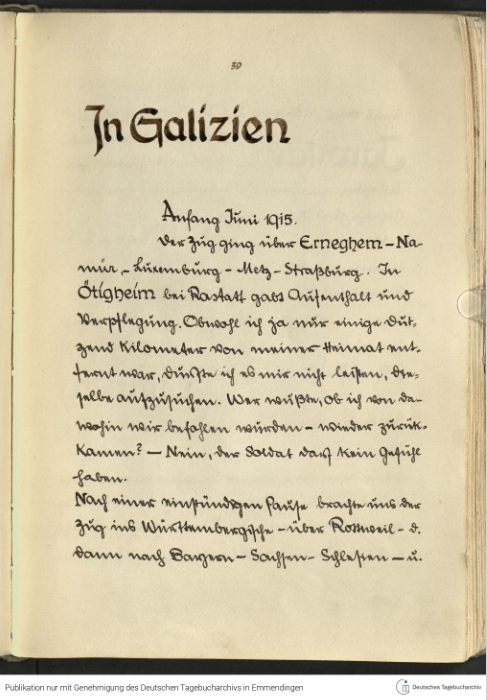 39
In Galizien
Anfang Juni 1915.
Der Zug ging über Erneghem – Na-
mür – Luxemburg – Metz – Straßburg. In
Ötigheim bei Rastatt gabs Aufenthalt und
Verpflegung. Obwohl ich ja nur einige Dut-
zend Kilometer von meiner Heimat ent-
fernt war, durfte ich es mir nicht leisten, die-
selbe aufzusuchen. Wer wußte, ob ich von da-
wohin wir befohlen wurden – wieder zurück-
kamen? – Nein, der Soldat darf kein Gefühl
haben.
Nach einer einstündigen Pause brachte uns der
Zug ins Württembergische – über Rottweil – d.
dann nach Bayern – Sachsen – Schlesien – u.
Publikation nur mit Genehmigung des Deutschen Tagebucharchivs in Emmendingen
Deutsches Tagebucharchiv